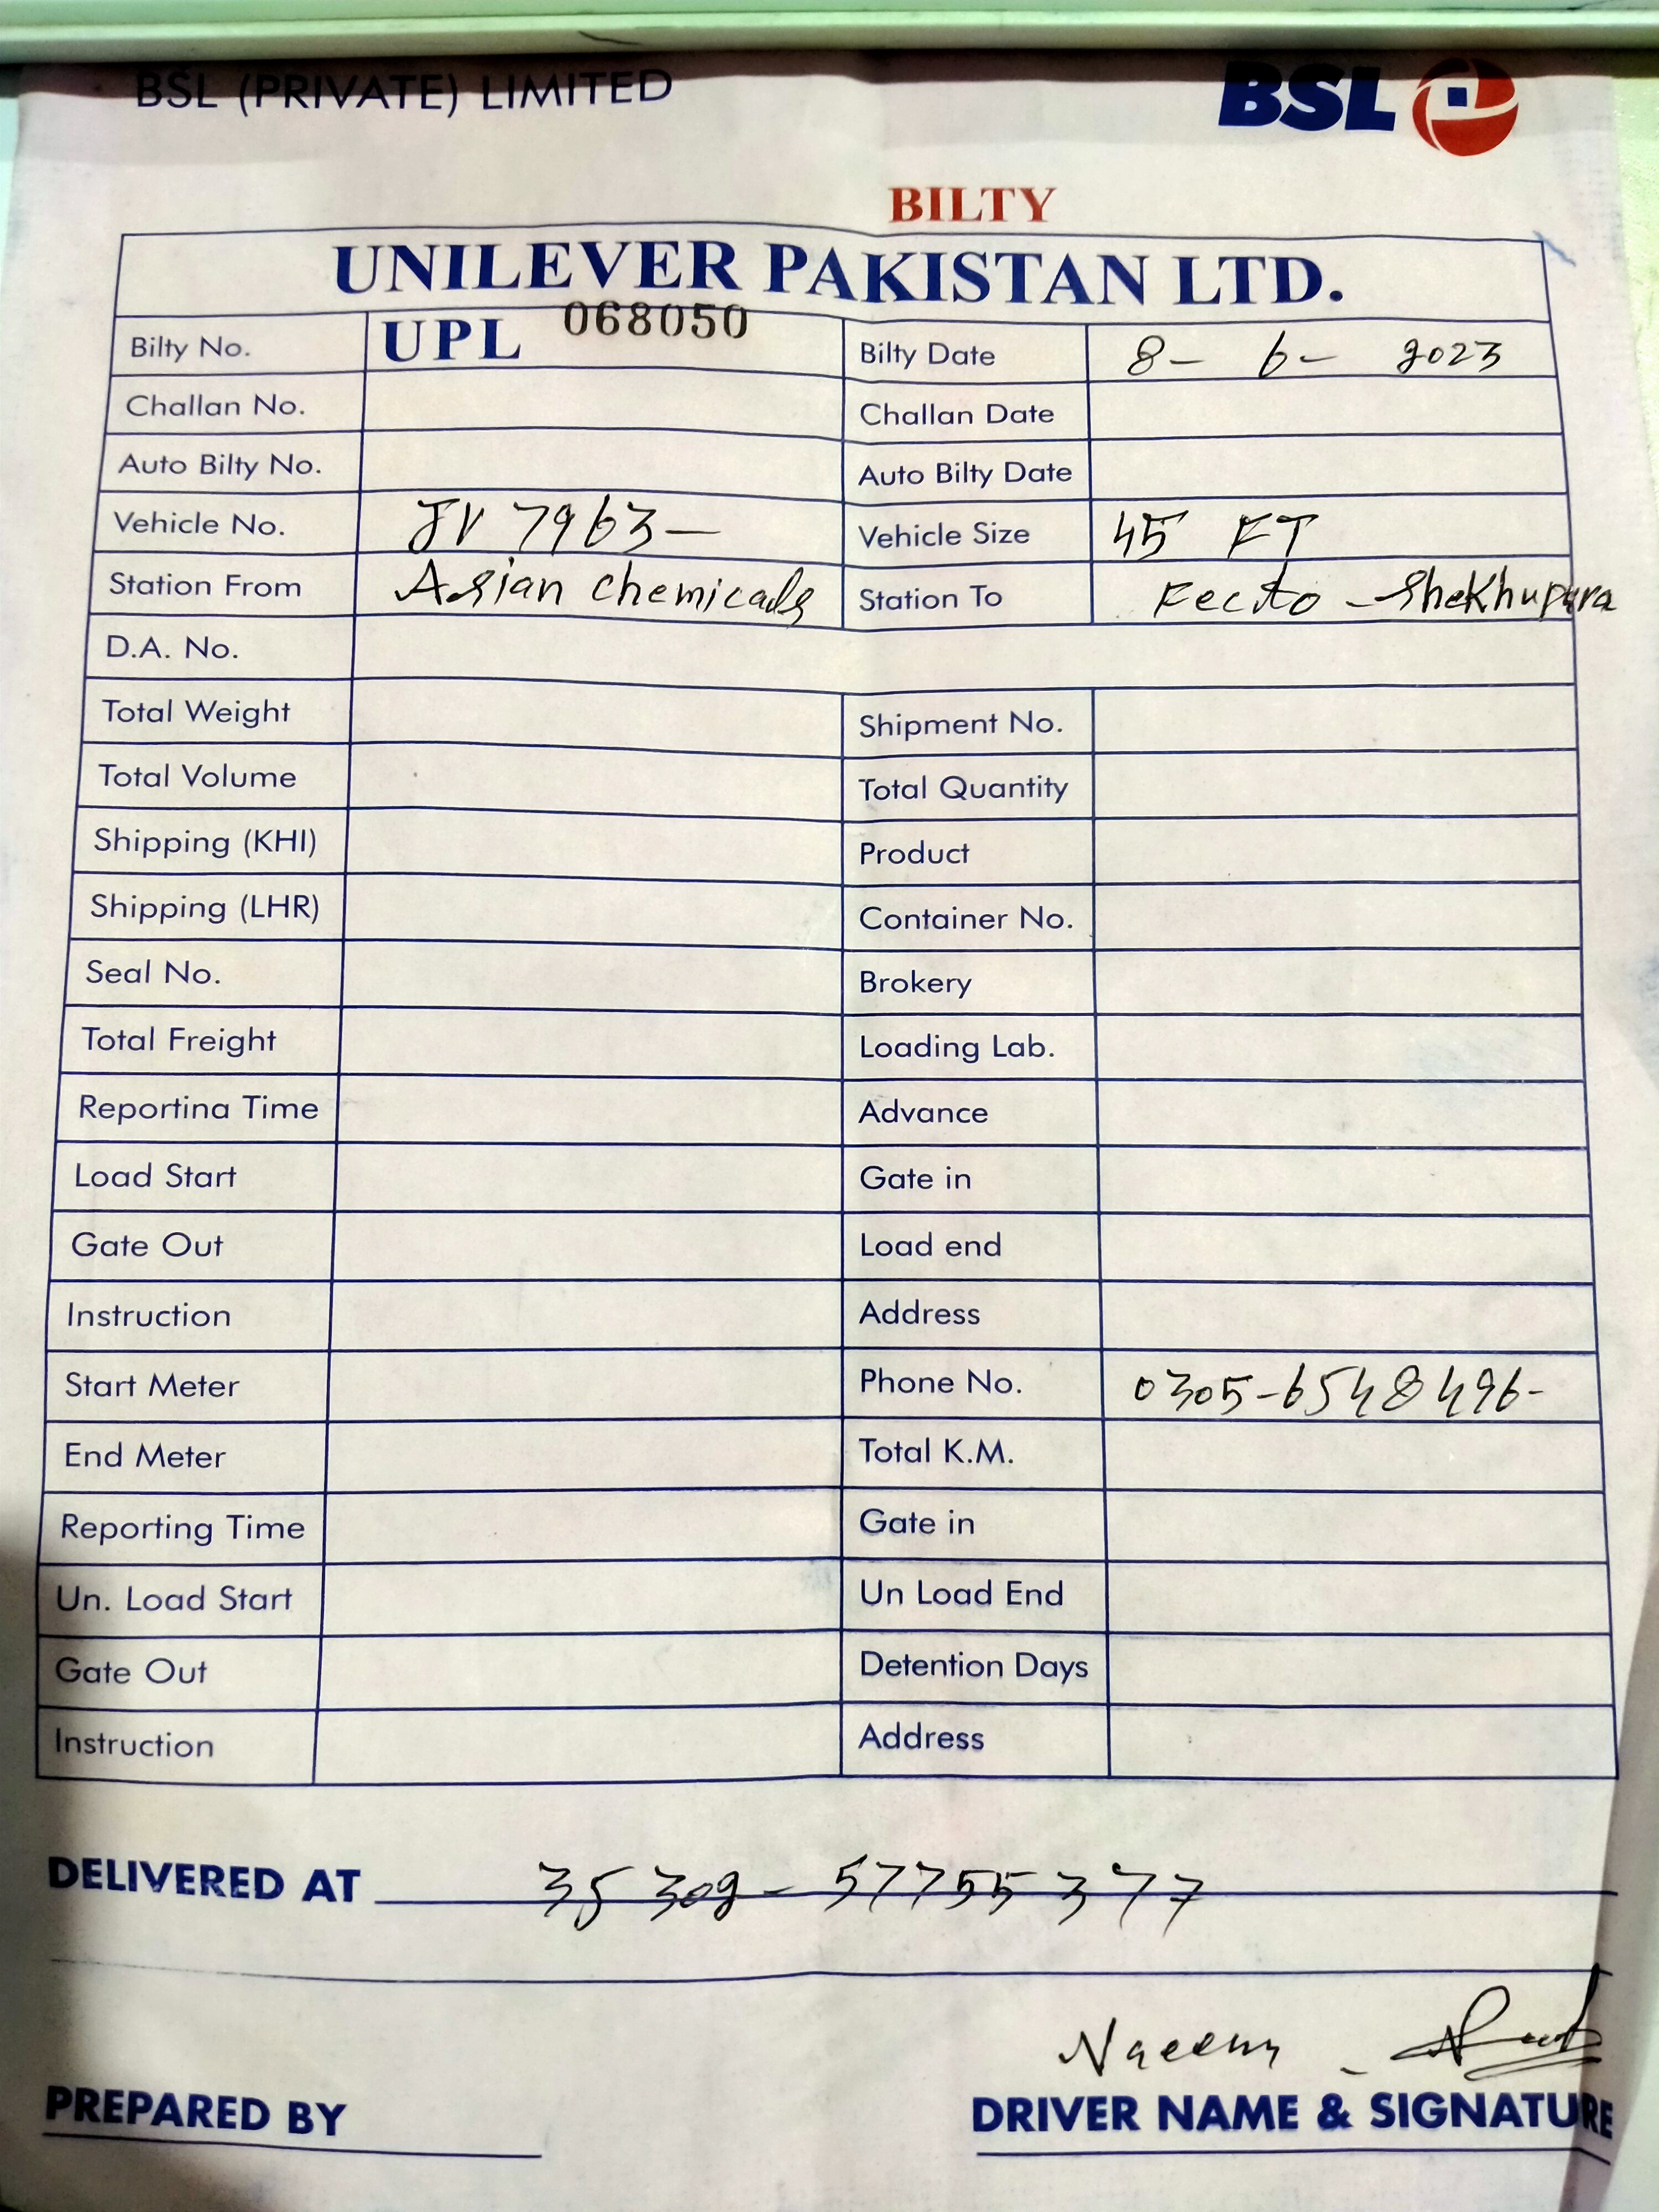 BSL (PRIVATE) LIMITED
BSL
BILTY
UNILEVER PAKISTAN LTD.
Bilty No. UPL 068050 Bilty Date 8- 6- 2023
Challan No. Challan Date
Auto Bilty No. Auto Bilty Date
Vehicle No. JV 7963- Vehicle Size 45 FT
Station From Asian chemicals Station To Fecto - Shekhupura
D.A. No.
Total Weight Shipment No.
Total Volume Total Quantity
Shipping (KHI) Product
Shipping (LHR) Container No.
Seal No. Brokery
Total Freight Loading Lab.
Reportina Time Advance
Load Start Gate in
Gate Out Load end
Instruction Address
Start Meter Phone No. 0305-6548496-
End Meter Total K.M.
Reporting Time Gate in
Un. Load Start Un Load End
Gate Out Detention Days
Instruction Address
DELIVERED AT 35302- 5775537 7
Naeem -
PREPARED BY DRIVER NAME & SIGNATURE